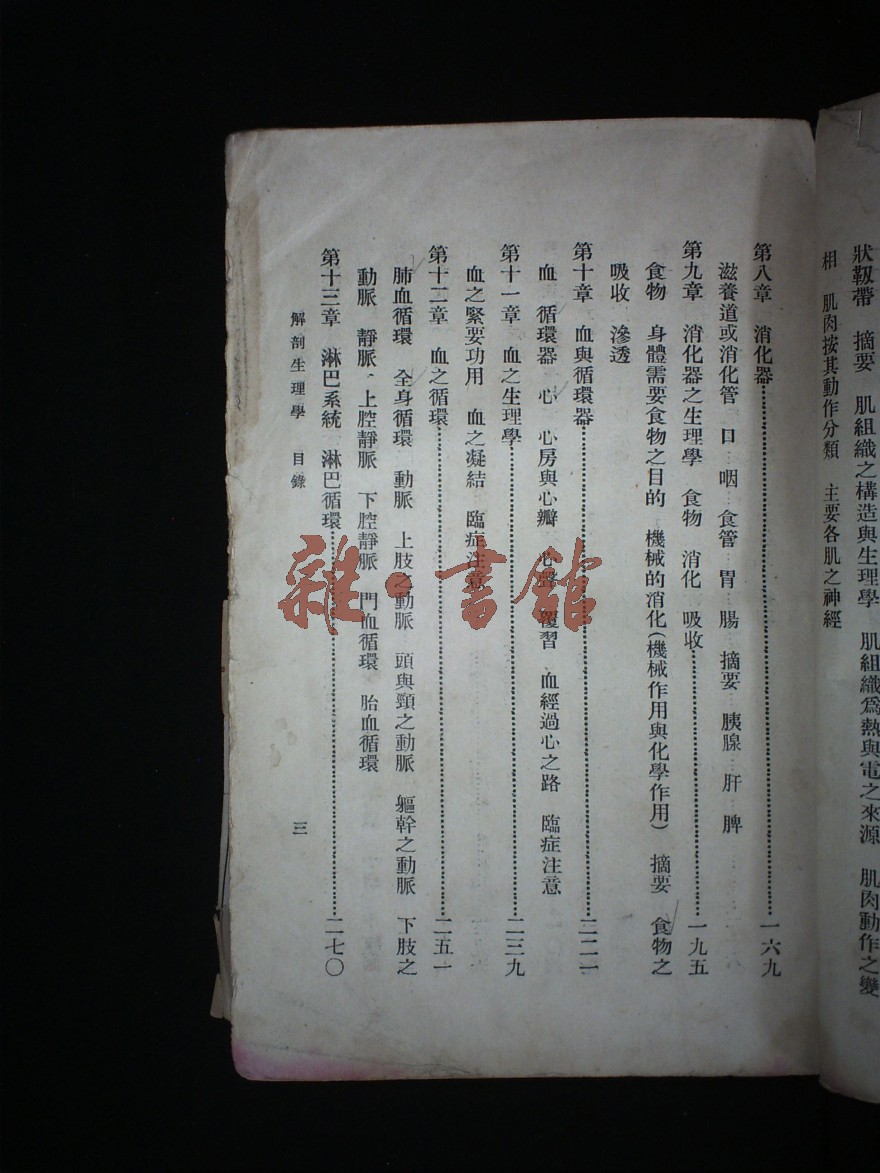 狀韌帶　摘要　肌組織之構造與生理學　肌組織爲熱與電之來源　肌肉動作之變
相　肌肉按其動作分類　主要各肌之神經
第八章　消化器……一六九
滋養道或消化管　口　咽　食管　胃　腸　摘要　胰腺　肝　脾
第九章　消化器之生理學　食物　消化　吸收……一九五
食物　身體需要食物之目的　機械的消化(機械作用與化學作用)　摘要　食物之
吸收　滲透
第十章　血與循環器……二二一
血　循環器　心　心房與心瓣　心聲　覆習　血經過心之路　臨症注意
第十一章　血之生理學……二三九
血之緊要功用　血之凝結　臨症注意
第十二章　血之循環……二五一
肺血循環　全身循環　動脈　上肢之動脈　頭與頸之動脈　軀幹之動脈　下肢之
動脈　靜脈　上腔靜脈　下腔靜脈　門血循環　胎血循環
第十三章　淋巴系統　淋巴循環……二七〇
解剖生理學　目錄　三
雜·書館